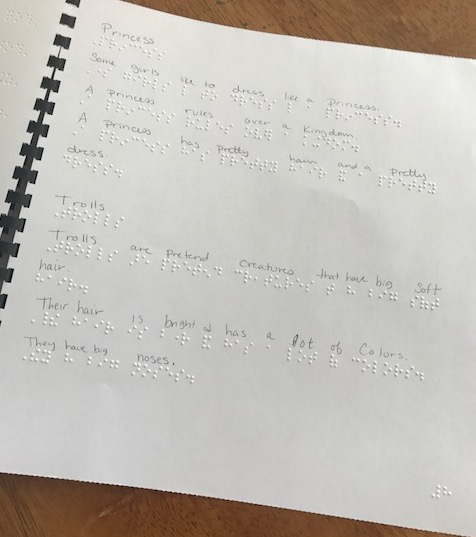 Princess
Some girls like to dress like a princess.
A princess rules over a kingdom.
A princess has pretty hair and a pretty
dress
Trolls
Trolls are pretend creatures that have big soft
hair
Their hair is bright & has a lot of colors.
They have big noses.